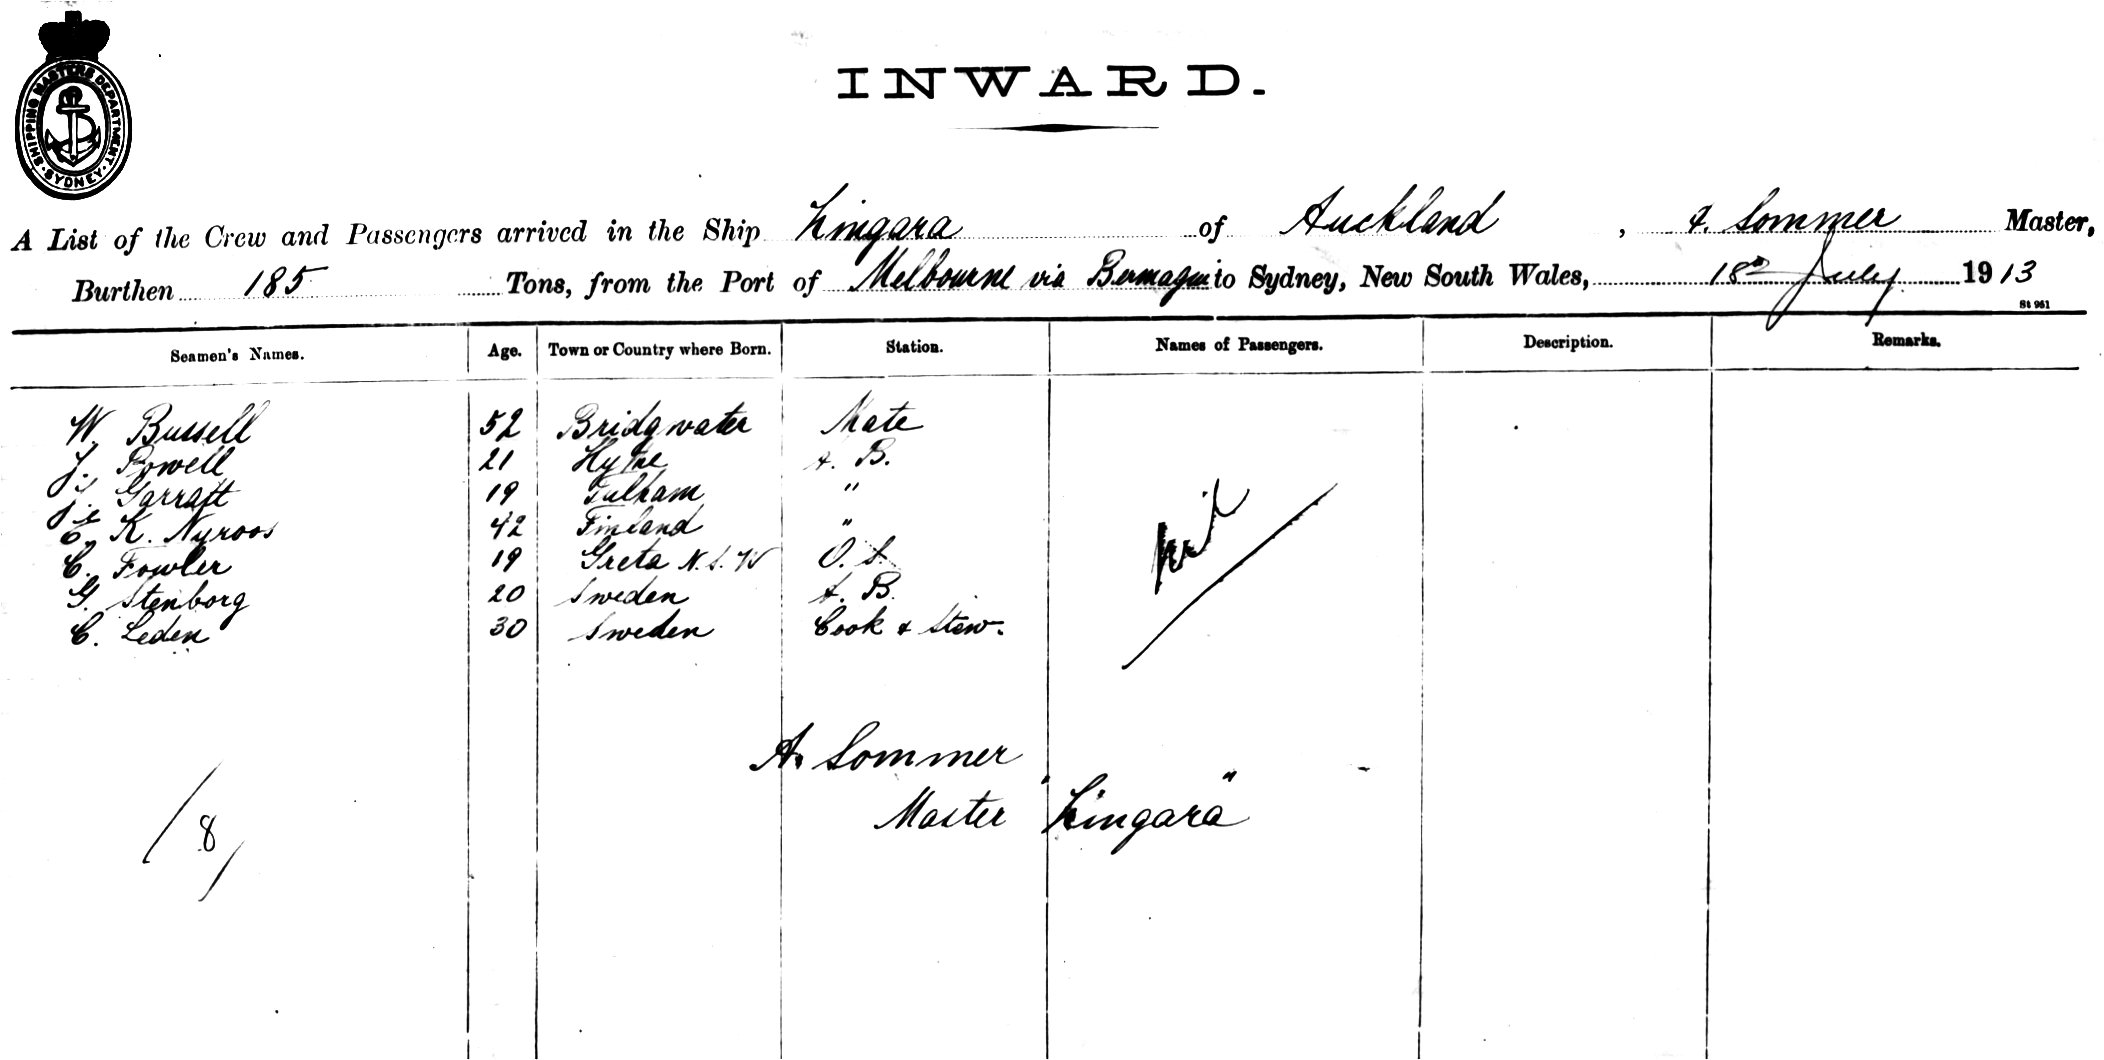 SHIPPING MASTERS DEPARTMENT · SYDNEY ·
INWARD.
A List of the Crew and Passengers arrived in the Ship Zingara of Auckland, A. Sommer Master,
Burthen 185 Tons, from the Port of Melbourne via Bermagui to Sydney, New South Wales, 18th July 1913
St 961
Seamen's Names. Age. Town or Country where Born. Station. Names of Passengers. Description. Remarks.
W. Bussell 52 Bridgwater Mate
J. Powell 21 Hythe A. B.
Garratt 19 Fulham "
K. Nyroos 42 Finland "
C. Fowler 19 Greta N.S.W O. S.
G. Stenborg 20 Sweden A. B.
C. Leden 30 Sweden Cook & Stew.
nil
A. Sommer
Master "Zingara"
/8/